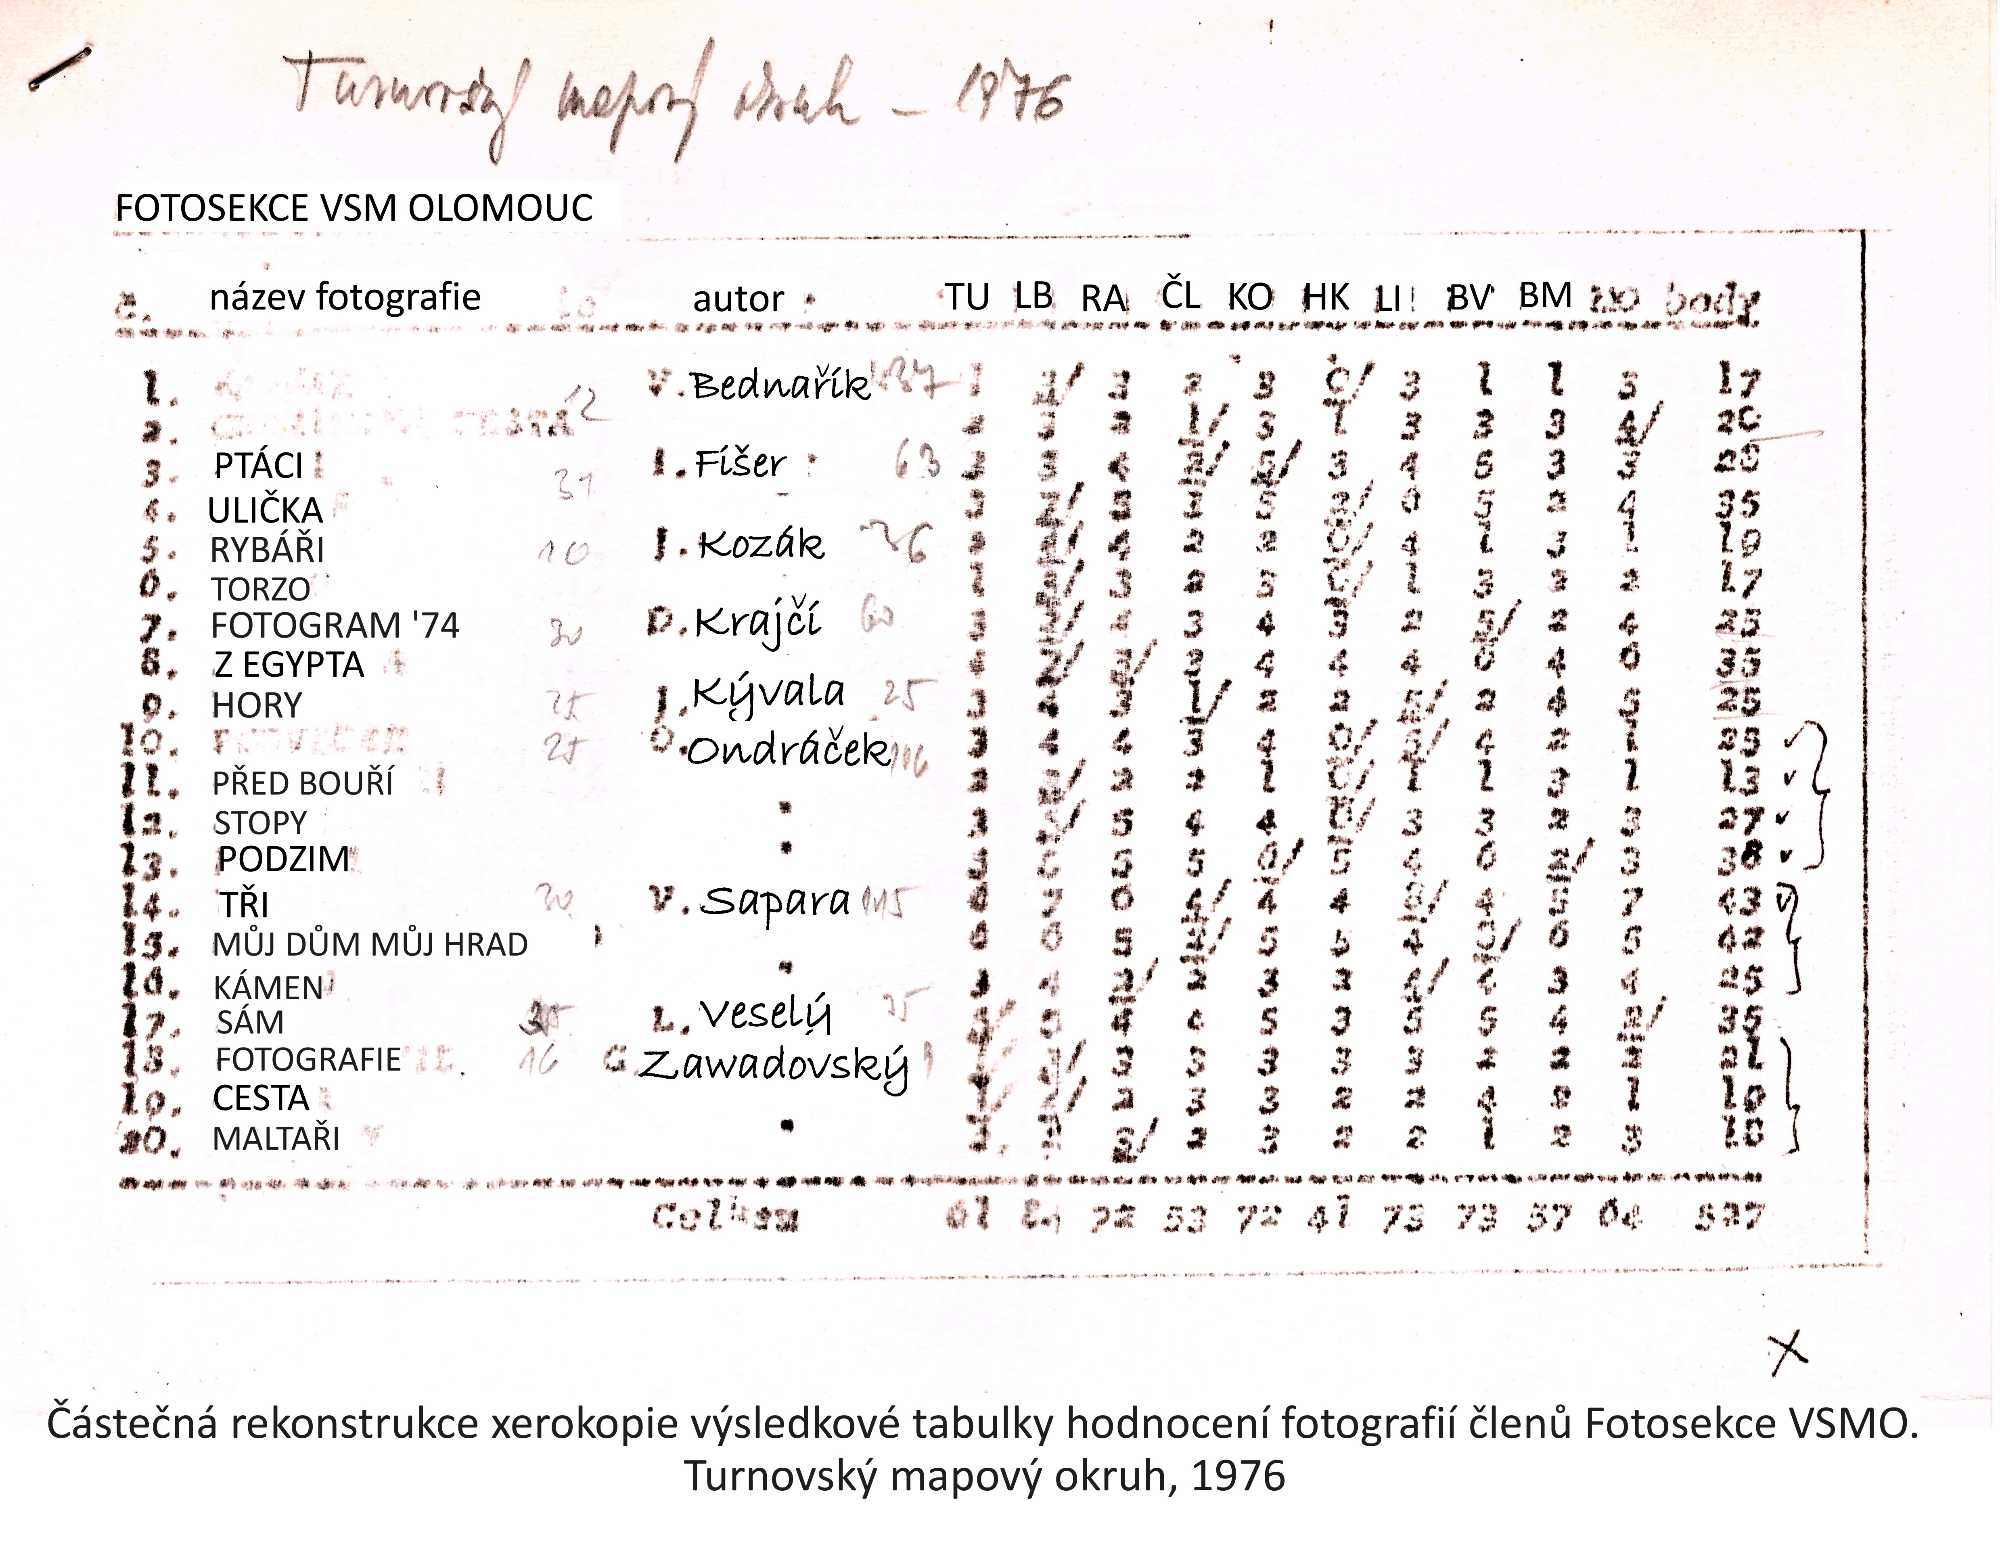 Turnovský mapový okruh – 1976
FOTOSEKCE VSM OLOMOUC
č. název fotografie autor TU LB RA ČL KO HK LI BV BM body
1. V. Bednařík 1 3 2 3 0/ 3 1 1 5 17
2. 12 2 3 2 1/ 3 1 3 3 3 4/ 20
3. PTÁCI 31 I. Fíšer 63 3 4 2/ 5/ 3 4 5 3 3 28
4. ULIČKA 3 2/ 5 1 5 2/ 6 5 2 4 35
5. RYBÁŘI 10 J. Kozák 36 2 4 2 2 0/ 4 1 3 1 19
6. TORZO 1 3/ 3 2 3 0/ 1 3 2 2 17
7. FOTOGRAM '74 30 D. Krajčí 60 3 4 3 4 3 2 5/ 2 4 25
8. Z EGYPTA 4 2/ 3/ 3 4 4 4 6 4 6 35
9. HORY 25 J. Kývala 25 3 4 3 1/ 2 2 5/ 2 4 5 25
10. 25 O. Ondráček 116 3 4 4 3 4 0/ 5/ 4 2 1 25
11. PŘED BOUŘÍ 2 2/ 2 2 1 0/ 1 1 3 1 13
12. STOPY " 3 5 4 4 0/ 3 3 2 3 27
13. PODZIM " 5 6 5 5 6/ 5 4 6 2/ 3 38
14. TŘI 30 V. Sapara 115 6 7 6 4/ 4 4 8/ 4 5 7 43
15. MŮJ DŮM MŮJ HRAD 6 6 5 4/ 5 5 4 6 5 42
16. KÁMEN " 3 4 2/ 2 3 2 4/ 4 3 4 25
17. SÁM L. Veselý 35 5 4 4 5 3 5 5 4 2/ 35
18. FOTOGRAFIE 16 G Zawadovský 3/ 3 3 3 3 3 2 2 2 21
19. CESTA 1/ 2/ 2 3 3 2 2 4 2 1 19
20. MALTAŘI " 3 2 5/ 2 3 2 2 1 2 3 18
Celkem 61 72 53 72 41 73 73 57 64 527
Částečná rekonstrukce xerokopie výsledkové tabulky hodnocení fotografií členů Fotosekce VSMO.
Turnovský mapový okruh, 1976